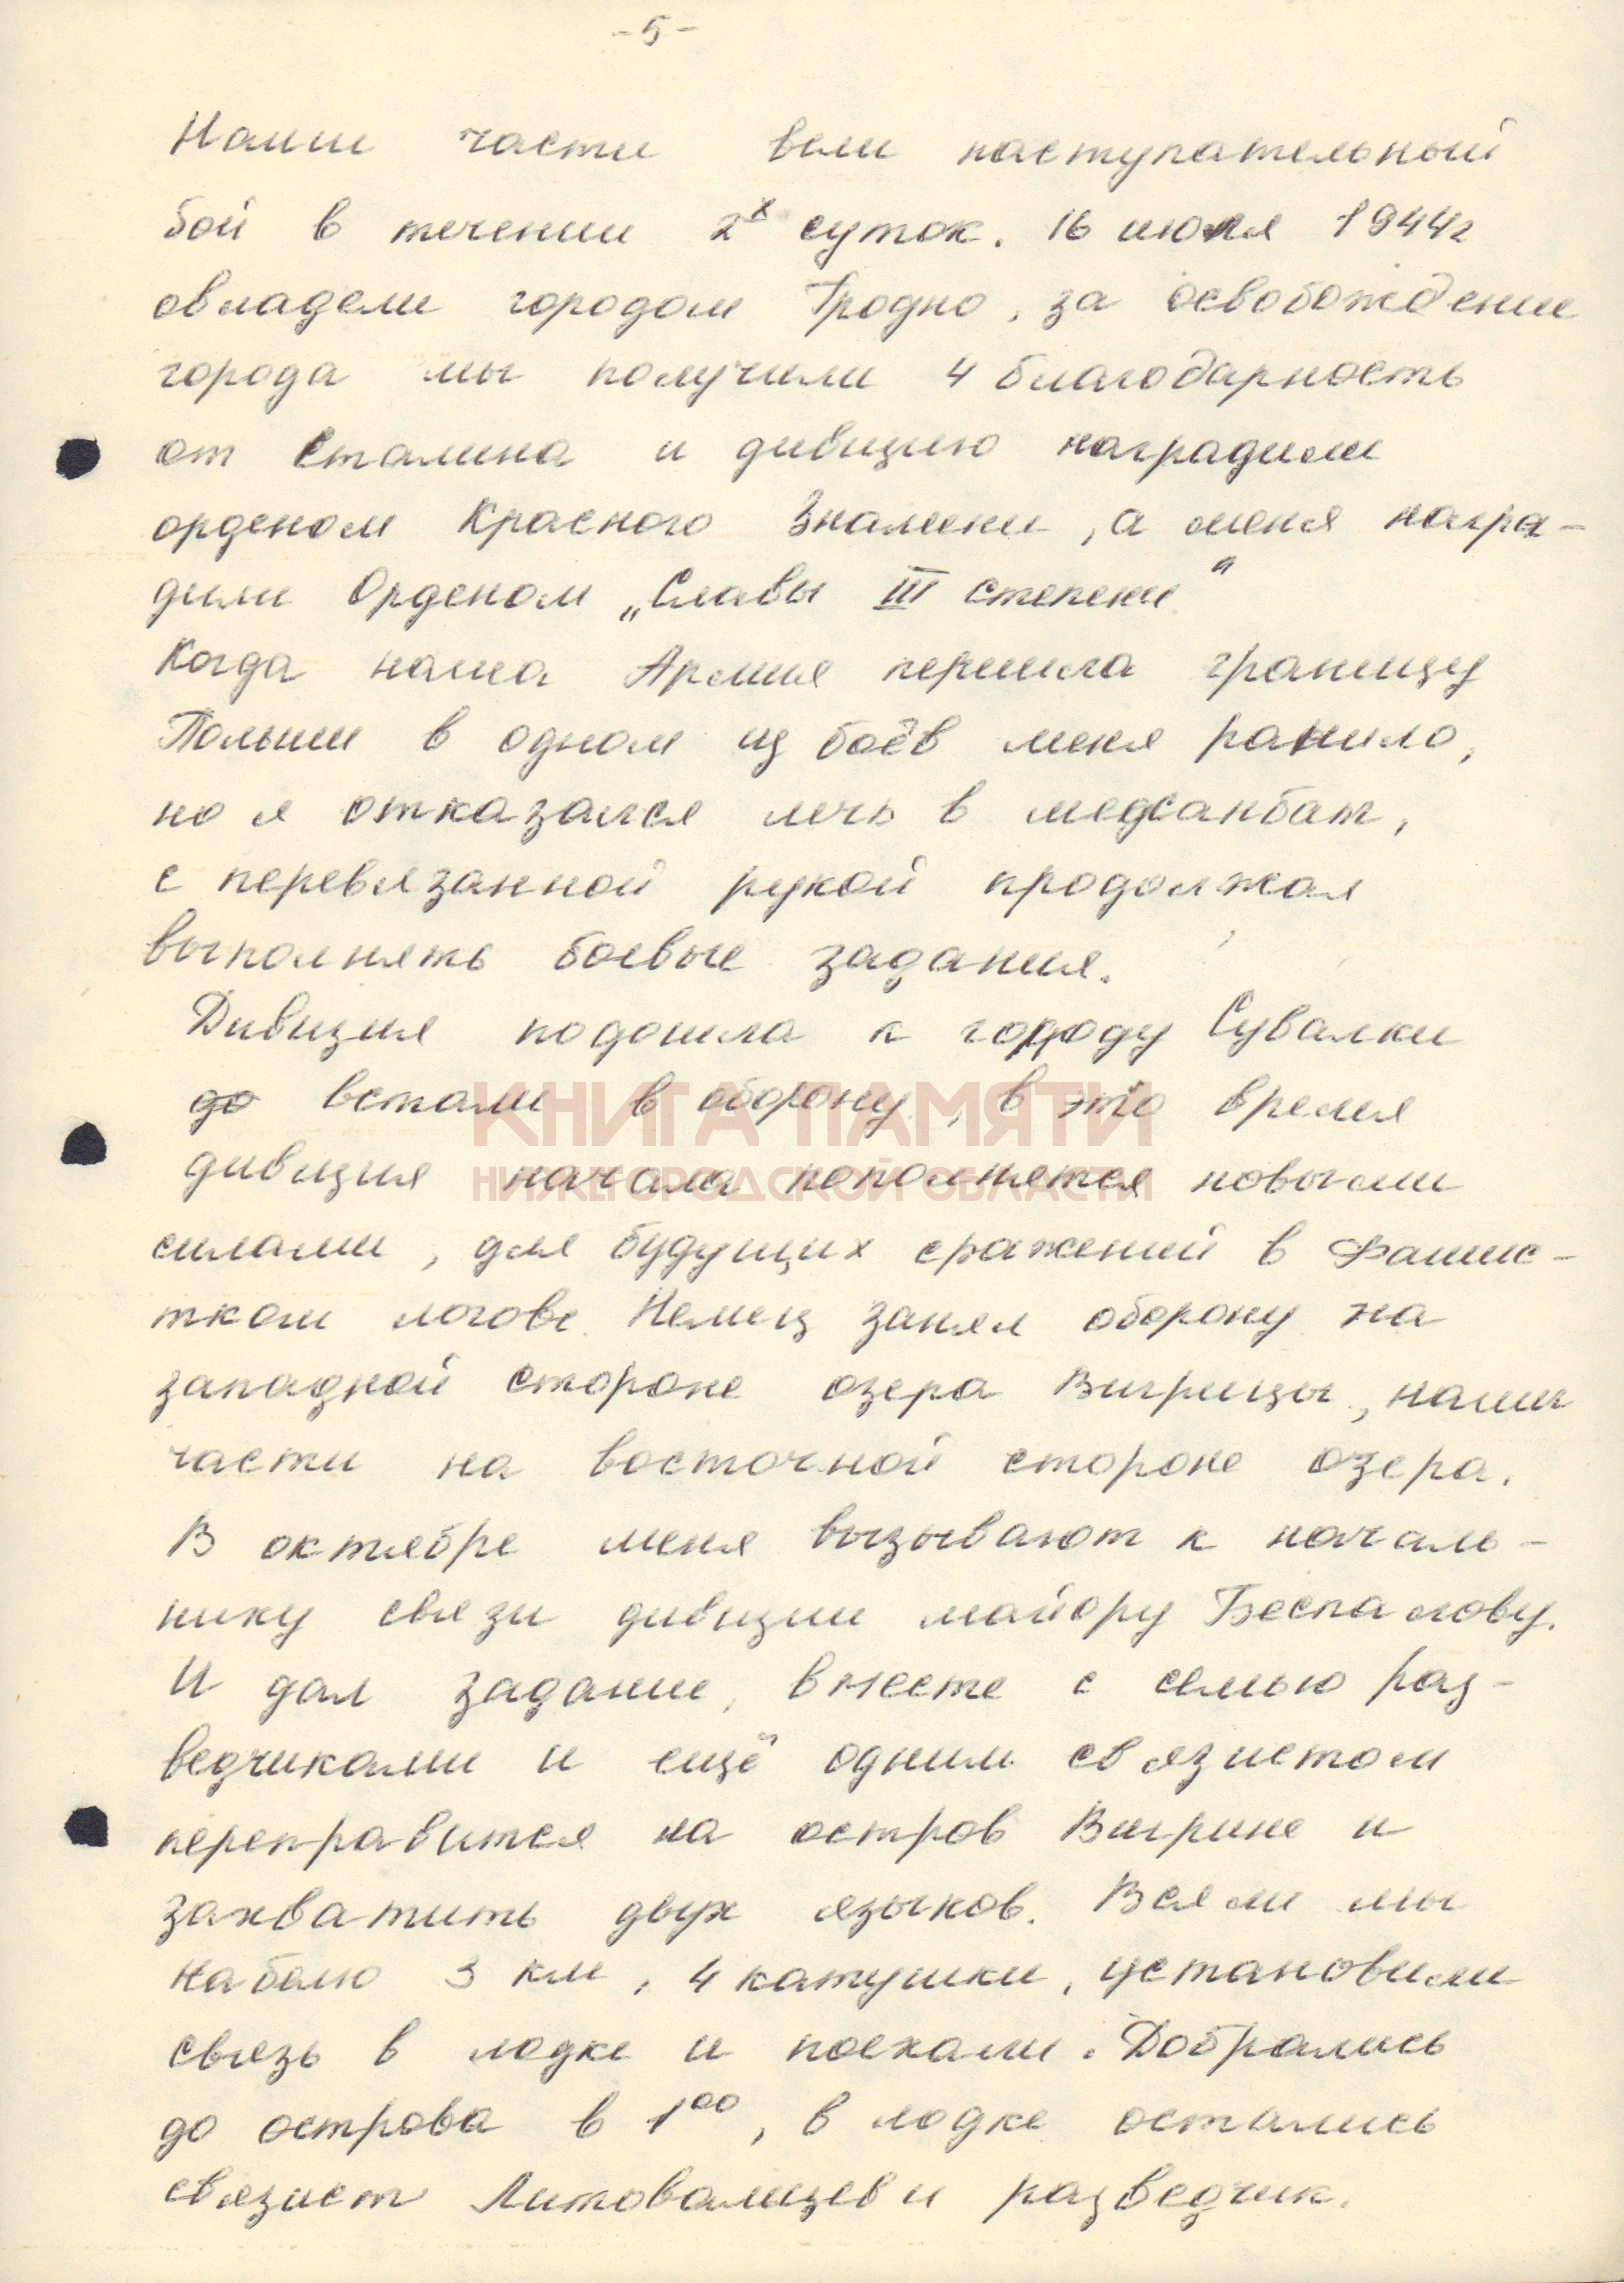 -5-
Наши части вели наступательный
бой в течении 2х суток. 16 июля 1944г
овладели городом Гродно, за освобождение
города мы получили 4 благодарность
от Сталина и дивизию наградили
орденом Красного Знамени, а меня награ-
дили Орденом „Славы III степени“
Когда наша Армия перешла границу
Польши в одном из боёв меня ранило,
но я отказался лечь в медсанбат,
с перевязанной рукой продолжал
выполнять боевые задания.
Дивизия подошла к городу Сувалки
до встали в оборону, в это время
КНИГА ПАМЯТИ
дивизия начала пополнятся новыми
НИЖЕГОРОДСКОЙ ОБЛАСТИ
силами, для будущих сражений в Фашис-
тком логове. Немец занял оборону на
западной стороне озера Вигрицы, наши
части на восточной стороне озера.
В октябре меня вызывают к началь-
нику связи дивизии майору Беспалову.
И дал задание, вместе с семью раз-
ведчиками и ещё одним связистом
переправится на остров Вигрине и
захватить двух языков. Взяли мы
кабелю 3 км, 4 катушки, установили
связь в лодке и поехали. Добрались
до острова в 1⁰⁰, в лодке остались
связист и разведчик.